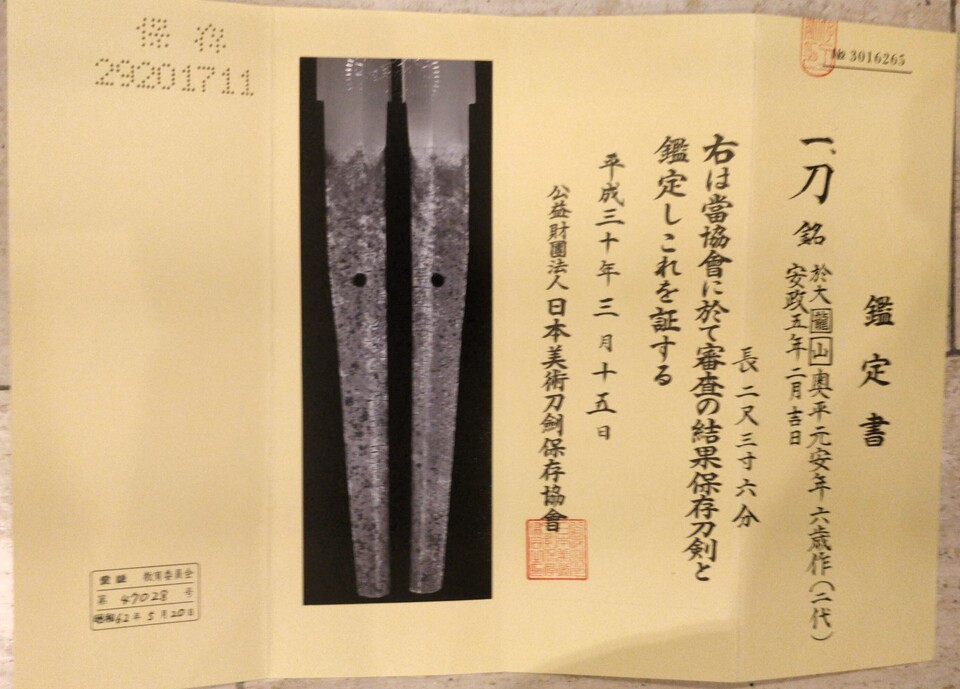 № 3016265
鑑定書
一、刀 銘 於大龍山奥平元安年六歳作(二代)
安政五年二月吉日
長二尺三寸六分
右は當協會に於て審査の結果保存刀剣と
鑑定しこれを証する
平成三十年三月十五日
公益財團法人 日本美術刀剣保存協會
保存
29201711
教育委員会
第 47028 号
昭和62年5月20日